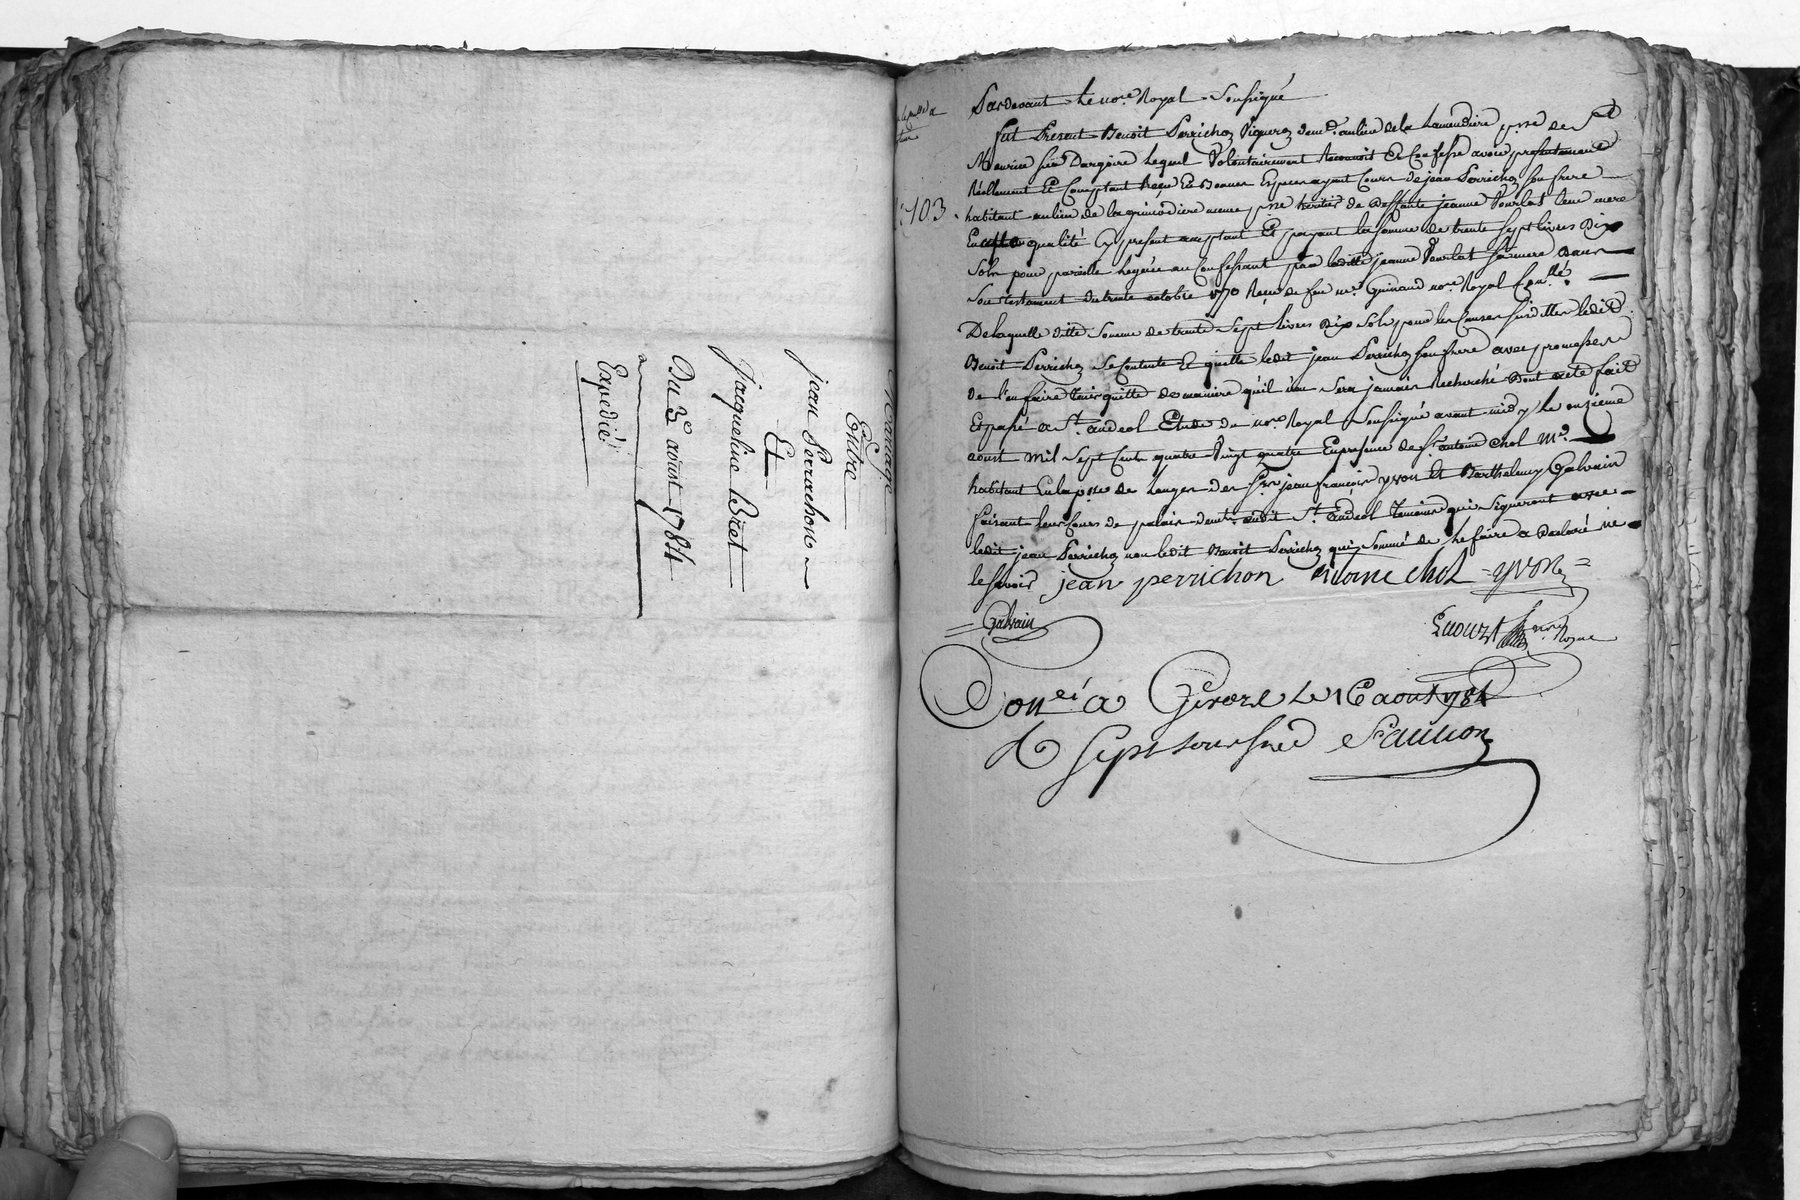 Mariage
Entre
jean Perrachon
Et
Jaqueline le Bret
Du 3e aoust 1784
Expedié
103.
Pardevant Le nore. Royal Soussigné
fut Present Benoit Perrichon Vigneron demt. au lieu de la Lamendiere psse de St
Maurice sur Dargoire Lequel Volontairement Reconnoit Et Confesse avoir presentement
Réellement Et Comptant Reçu En Bonnes Especes ayant Cours de jean Perrichon son frere
habitant au lieu de la meme psse heritier de Deffunte jeanne Vourlat leur mere
En cette qualité Cy present acceptant Et payant la somme de trente sept livres Dix
Sols pour pareille Leguée au Confessant par laditte jeanne Vourlat sa mere Dans
Son testament du trente octobre 1770 Reçu de feu me. Guinand nore. Royal
De laquelle ditte Somme de trente Sept livres Dix Sols pour les Causes susdittes ledit
Benoit Perrichon Se Contente Et quitte ledit jean Perrichon son frere avec promesse
de l'en faire tenir quitte de maniere qu'il n'en Sera jamais Recherché Dont acte fait
Et passé a St. andeol Etude du nore. Royal Soussigné avant midy le onzieme
aoust mil Sept Cent quatre Vingt quatre En presence de Sr. antoine Chol Md.
habitant En la psse de Longes des Srs jean francois yvon Et Barthelemy Galvain
faisant leur Cours de palais demt. audit St. Andeol temoins qui Signeront avec
ledit jean Perrichon non ledit Benoit Perrichon qui Sommé de Le faire a Declaré ne
le Savoir jean perrichon antoine chol yvon
Galvain
Coné a Givors Le 16 aout 1784
R Sept sous six d